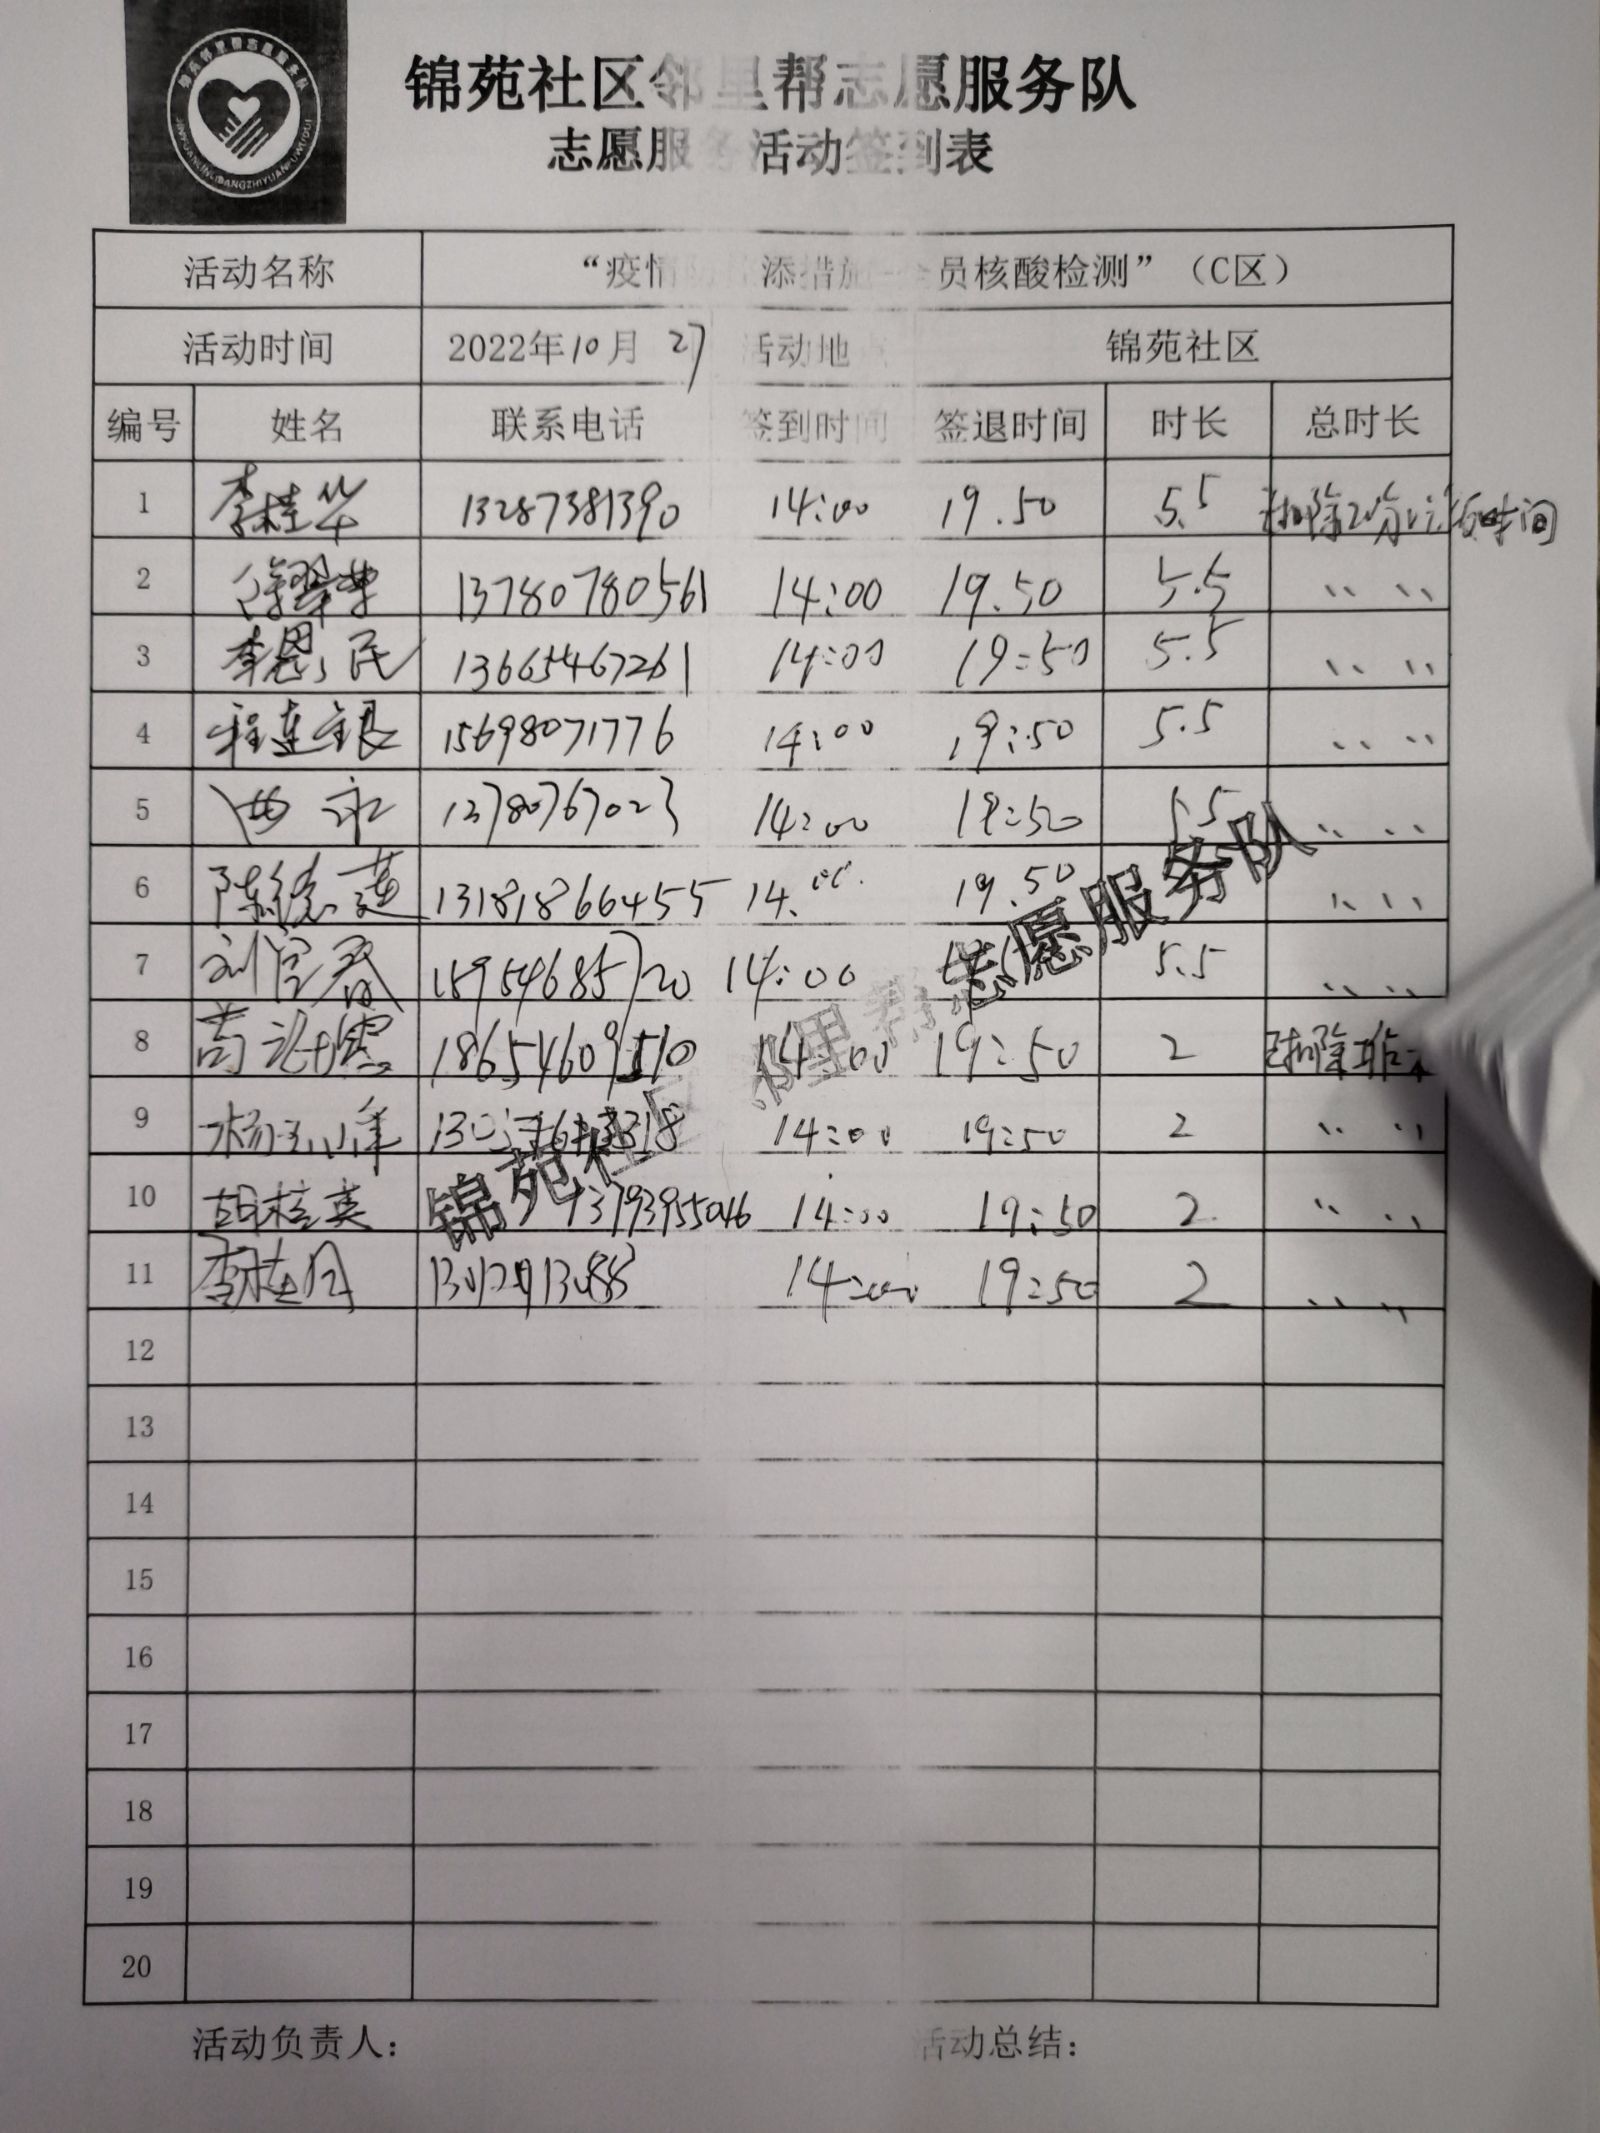 锦苑社区邻里帮志愿服务队
志愿服务活动签到表
活动名称 “疫情 添措施 员核酸检测”(C区)
活动时间 2022年10月 27 活动地点 锦苑社区
编号 姓名 联系电话 签到时间 签退时间 时长 总时长
1 李桂华 13287381390 14:00 19.50 5.5 扣除20分 时间
2 13780780561 14:00 19.50 5.5 、、 、、
3 李恩民 13665467261 14:00 19:50 5.5 、、 、、
4 程连银 15698071776 14:00 19:50 5.5 、、 、、
5 13780767023 14:00 19:50 5.5 、、 、、
6 陈德莲 13181866455 14.00. 19.50 、、 、、
7 刘宝春 15954685720 14:00 5.5 、、 、、
8 18654609510 14:00 19:50 2 扣除
9 14:00 19:50 2 、、 、、
10 胡桂英 13793955046 14:00 19:50 2 、、 、、
11 李桂风 14:00 19:50 2 、、 、、
12
13
14
15
16
17
18
19
20
锦苑社区邻里帮志愿服务队
活动负责人: 活动总结: